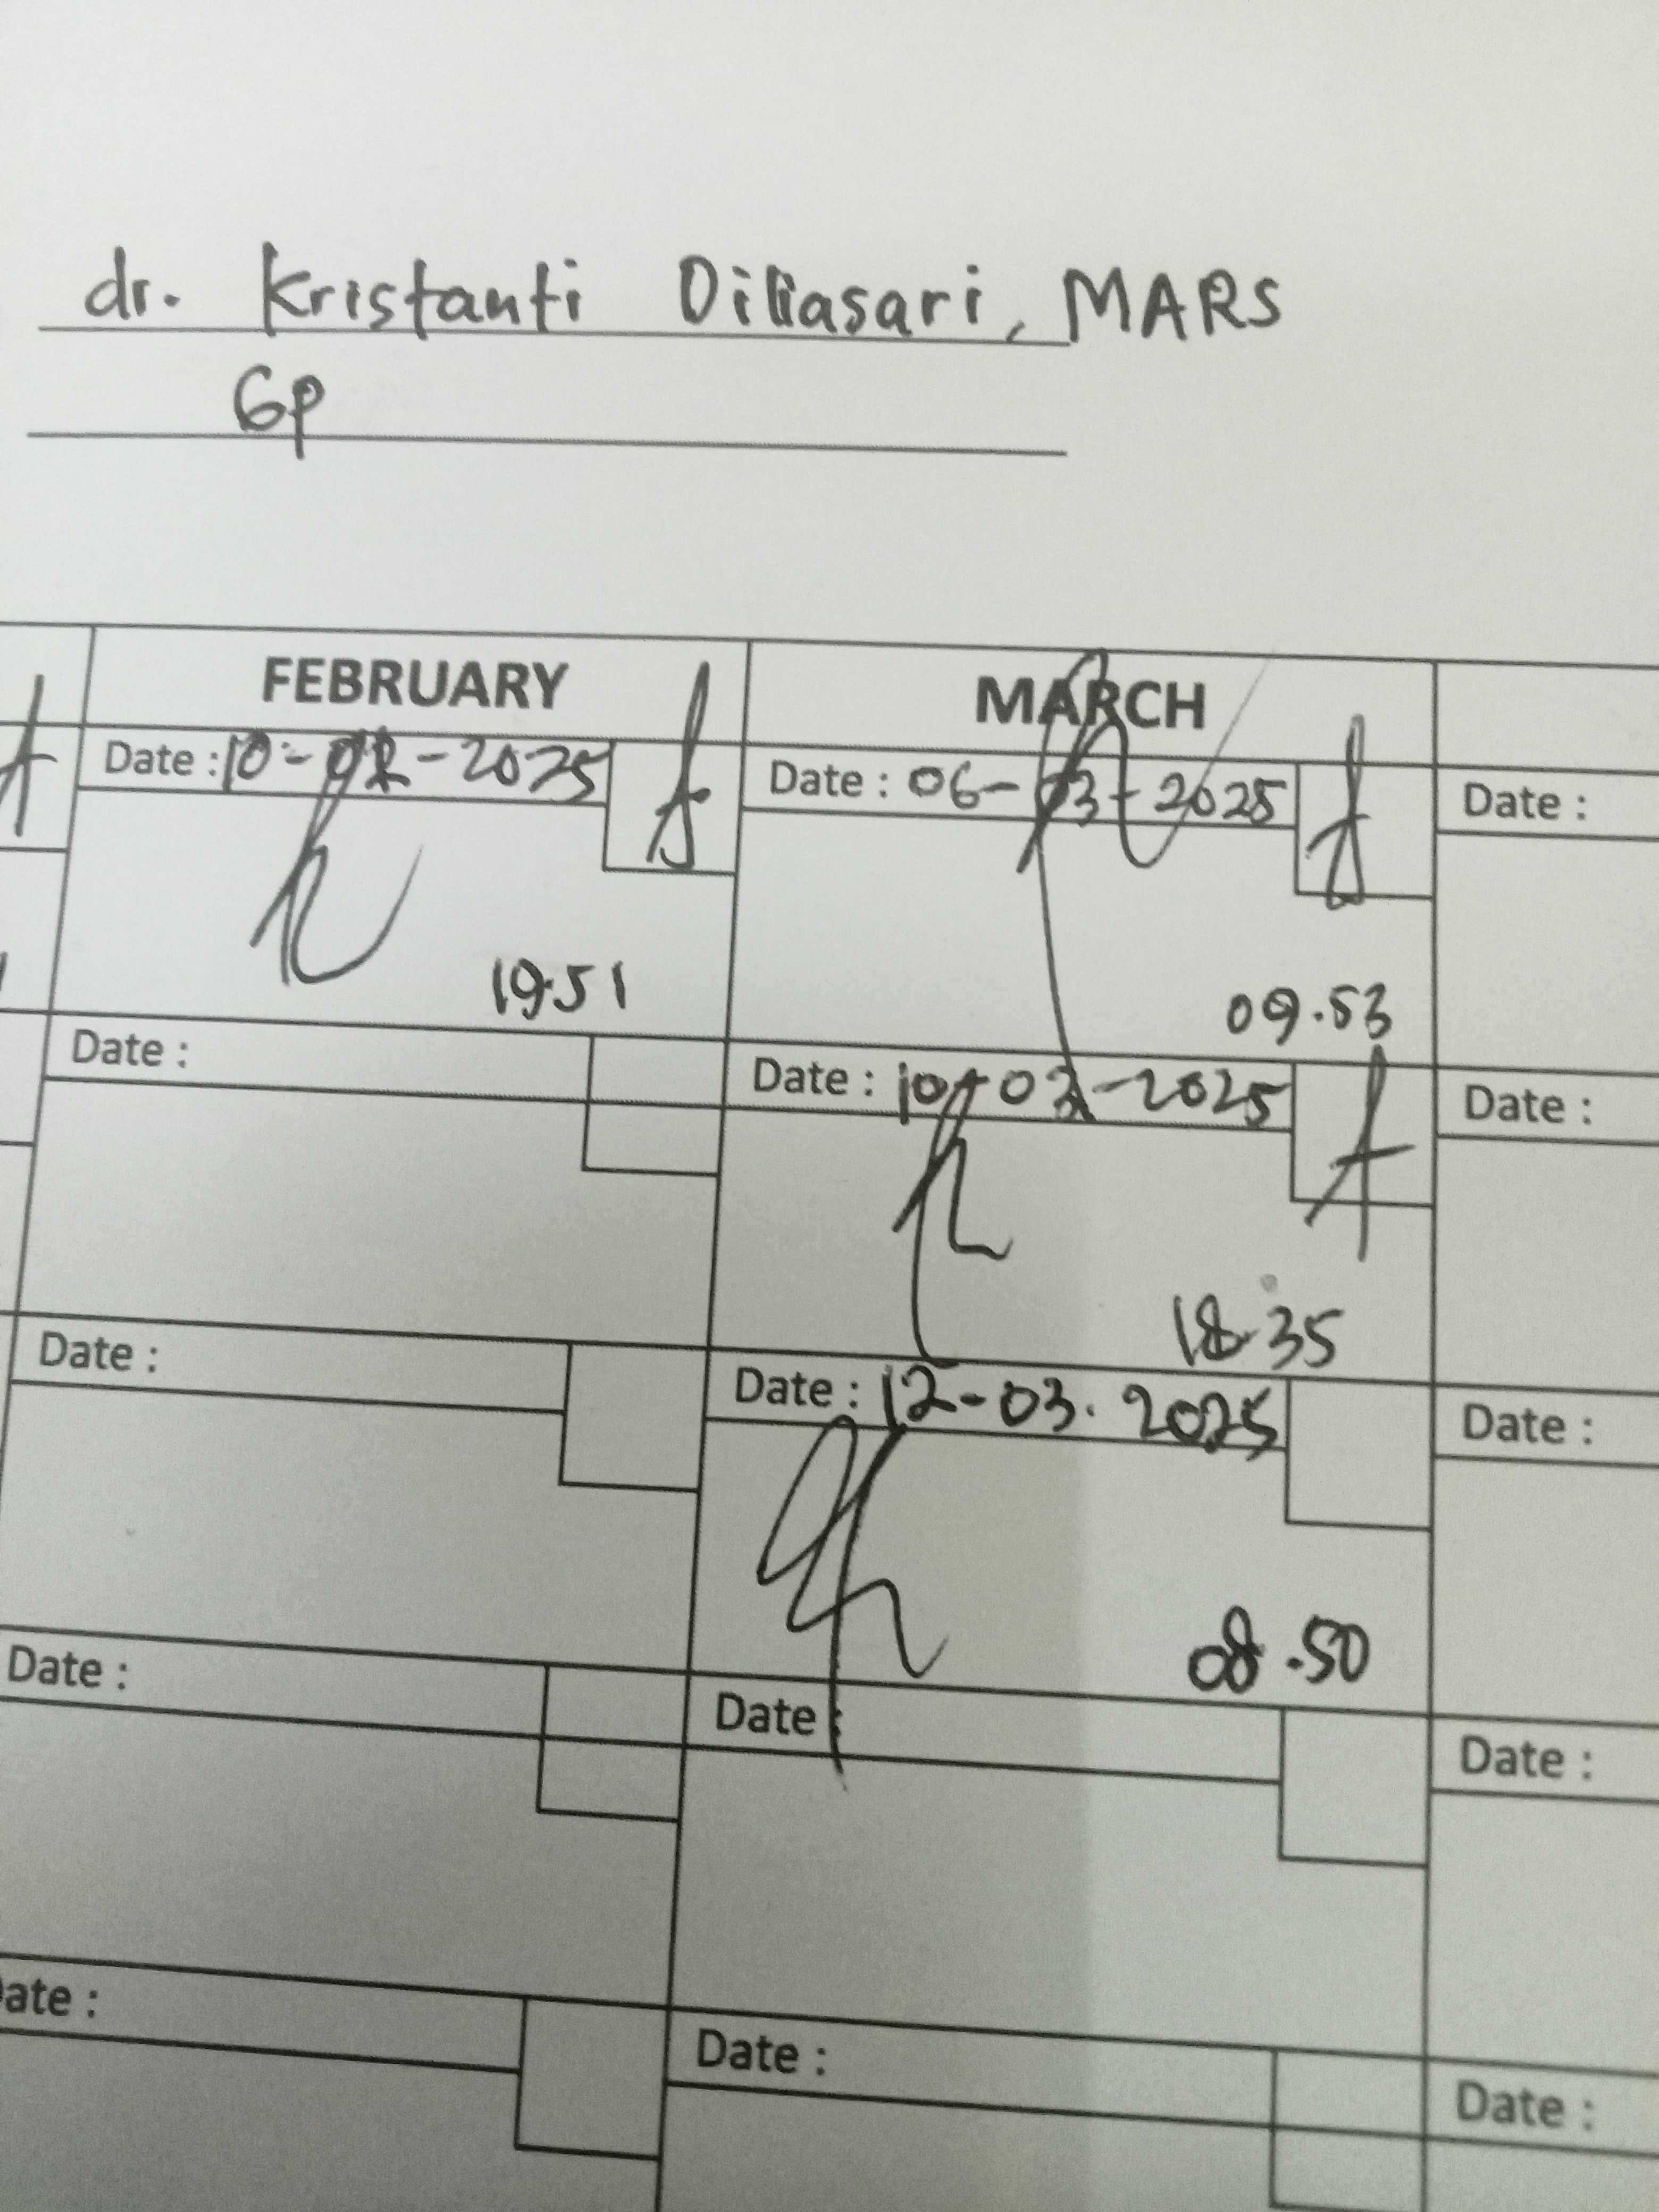 dr. Kristanti Diliasari, MARS
Gp
FEBRUARY MARCH
Date : 10-02-2025 Date : 06-03-2025 Date :
19.51 09.53
Date : Date : 10-03-2025 Date :
18.35
Date : Date : 12-03.2025 Date :
08.50
Date : Date : Date :
ate : Date : Date :